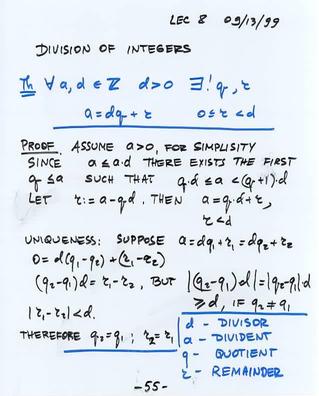 LEC 8 09/13/99
DIVISION OF INTEGERS
Th ∀ a,d ∈ ℤ d>0 ∃! q, r
a = dq + r 0≤r<d
PROOF. ASSUME a>0, FOR SIMPLISITY
SINCE a ≤ a·d THERE EXISTS THE FIRST
q ≤ a SUCH THAT q·d ≤ a < (q+1)·d
LET r := a - qd. THEN a = q·d + r,
r < d
UNIQUENESS: SUPPOSE a = dq₁ + r₁ = dq₂ + r₂
0 = d(q₁-q₂) + (r₁-r₂)
(q₂-q₁)d = r₁-r₂, BUT |(q₂-q₁)d| = |q₂-q₁|·d
≥ d, IF q₂ ≠ q₁
|r₁-r₂| < d.
THEREFORE q₂ = q₁ ; r₂ = r₁
d - DIVISOR
a - DIVIDENT
q - QUOTIENT
r - REMAINDER
-55-